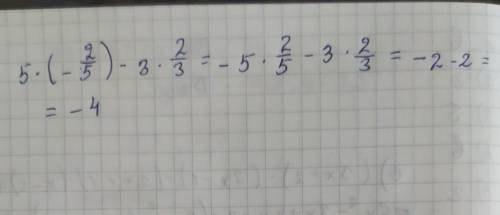 5·(-2/5)-3·2/3=-5·2/5-3·2/3=-2-2=
=-4